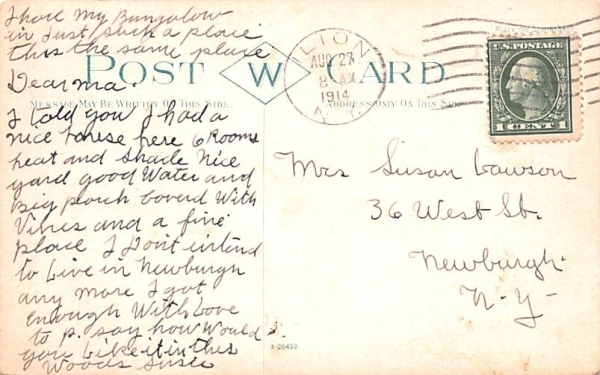 I have My Bungalow
in Just such a place
this the same place
POST W CARD
MESSAGE MAY BE WRITTEN ON THIS SIDE.
ADDRESS ONLY ON THIS SIDE.
ILION
AUG 27
8 AM
1914
N.Y.
U.S. POSTAGE
1 CENT 1
Dear ma.
I told you I had a
nice house here 6 Rooms
heat and Shade Nice
yard good Water and
Big porch Coverd With
Vines and a fine
place I Dont intend
to Live in Newburgh
any more I got
Enough With Love
to p. say how Would
you Like it in this
Woods Susie
Mrs Susan Lawson
36 West St.
Newburgh.
N-Y-
A-26459